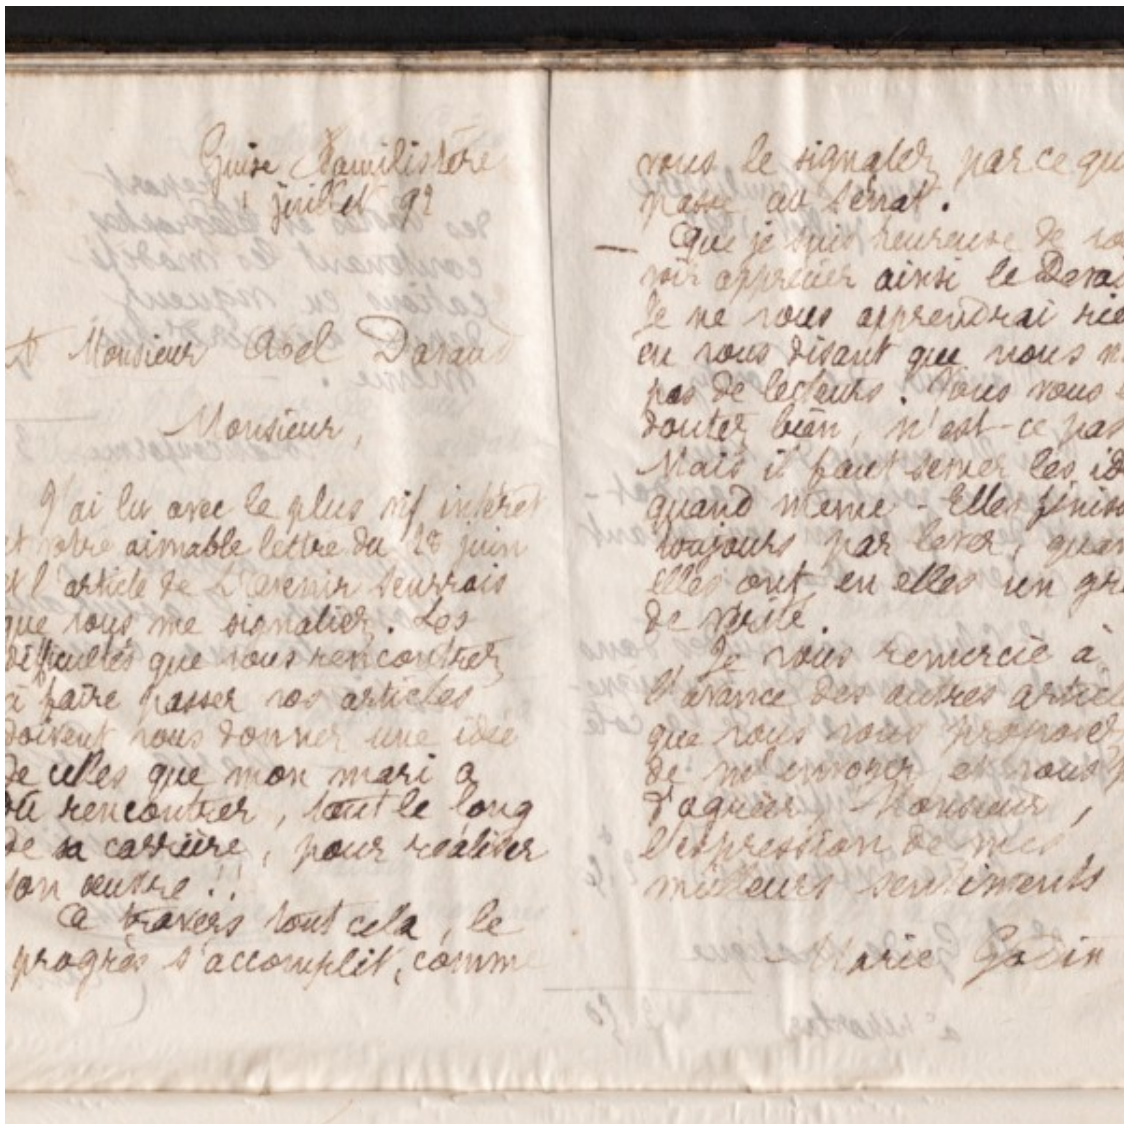 Guise Familistère
1 juillet 92
A Monsieur Axel Davaud
Monsieur,
J'ai lu avec le plus vif intérêt
et votre aimable lettre du 28 juin
et l'article de L'avenir seurrois
que vous me signaliez. Les
difficultés que vous rencontrez
à faire passer vos articles
doivent vous donner une idée
de celles que mon mari a
dû rencontrer, tout le long
de sa carrière, pour réaliser
son œuvre !!
A travers tout cela, le
progrès s'accomplit, comme
vous le signalez par ce qu
passe au Sénat.
— Que je suis heureuse de
voir apprécier ainsi le Devoi
Je ne vous apprendrai rie
en vous disant que nous n
pas de lecteurs. Vous vous e
doutez bien, n'est-ce pas
Mais il faut semer les id
quand même - Elles finiss
toujours par lever, quan
elles ont en elles un gr
de vérité.
Je vous remercie à
l'avance des autres articl
que vous vous proposez
de m'envoyer et vous p
d'agréer, Monsieur,
l'expression de mes
meilleurs sentiments
Marie Godin